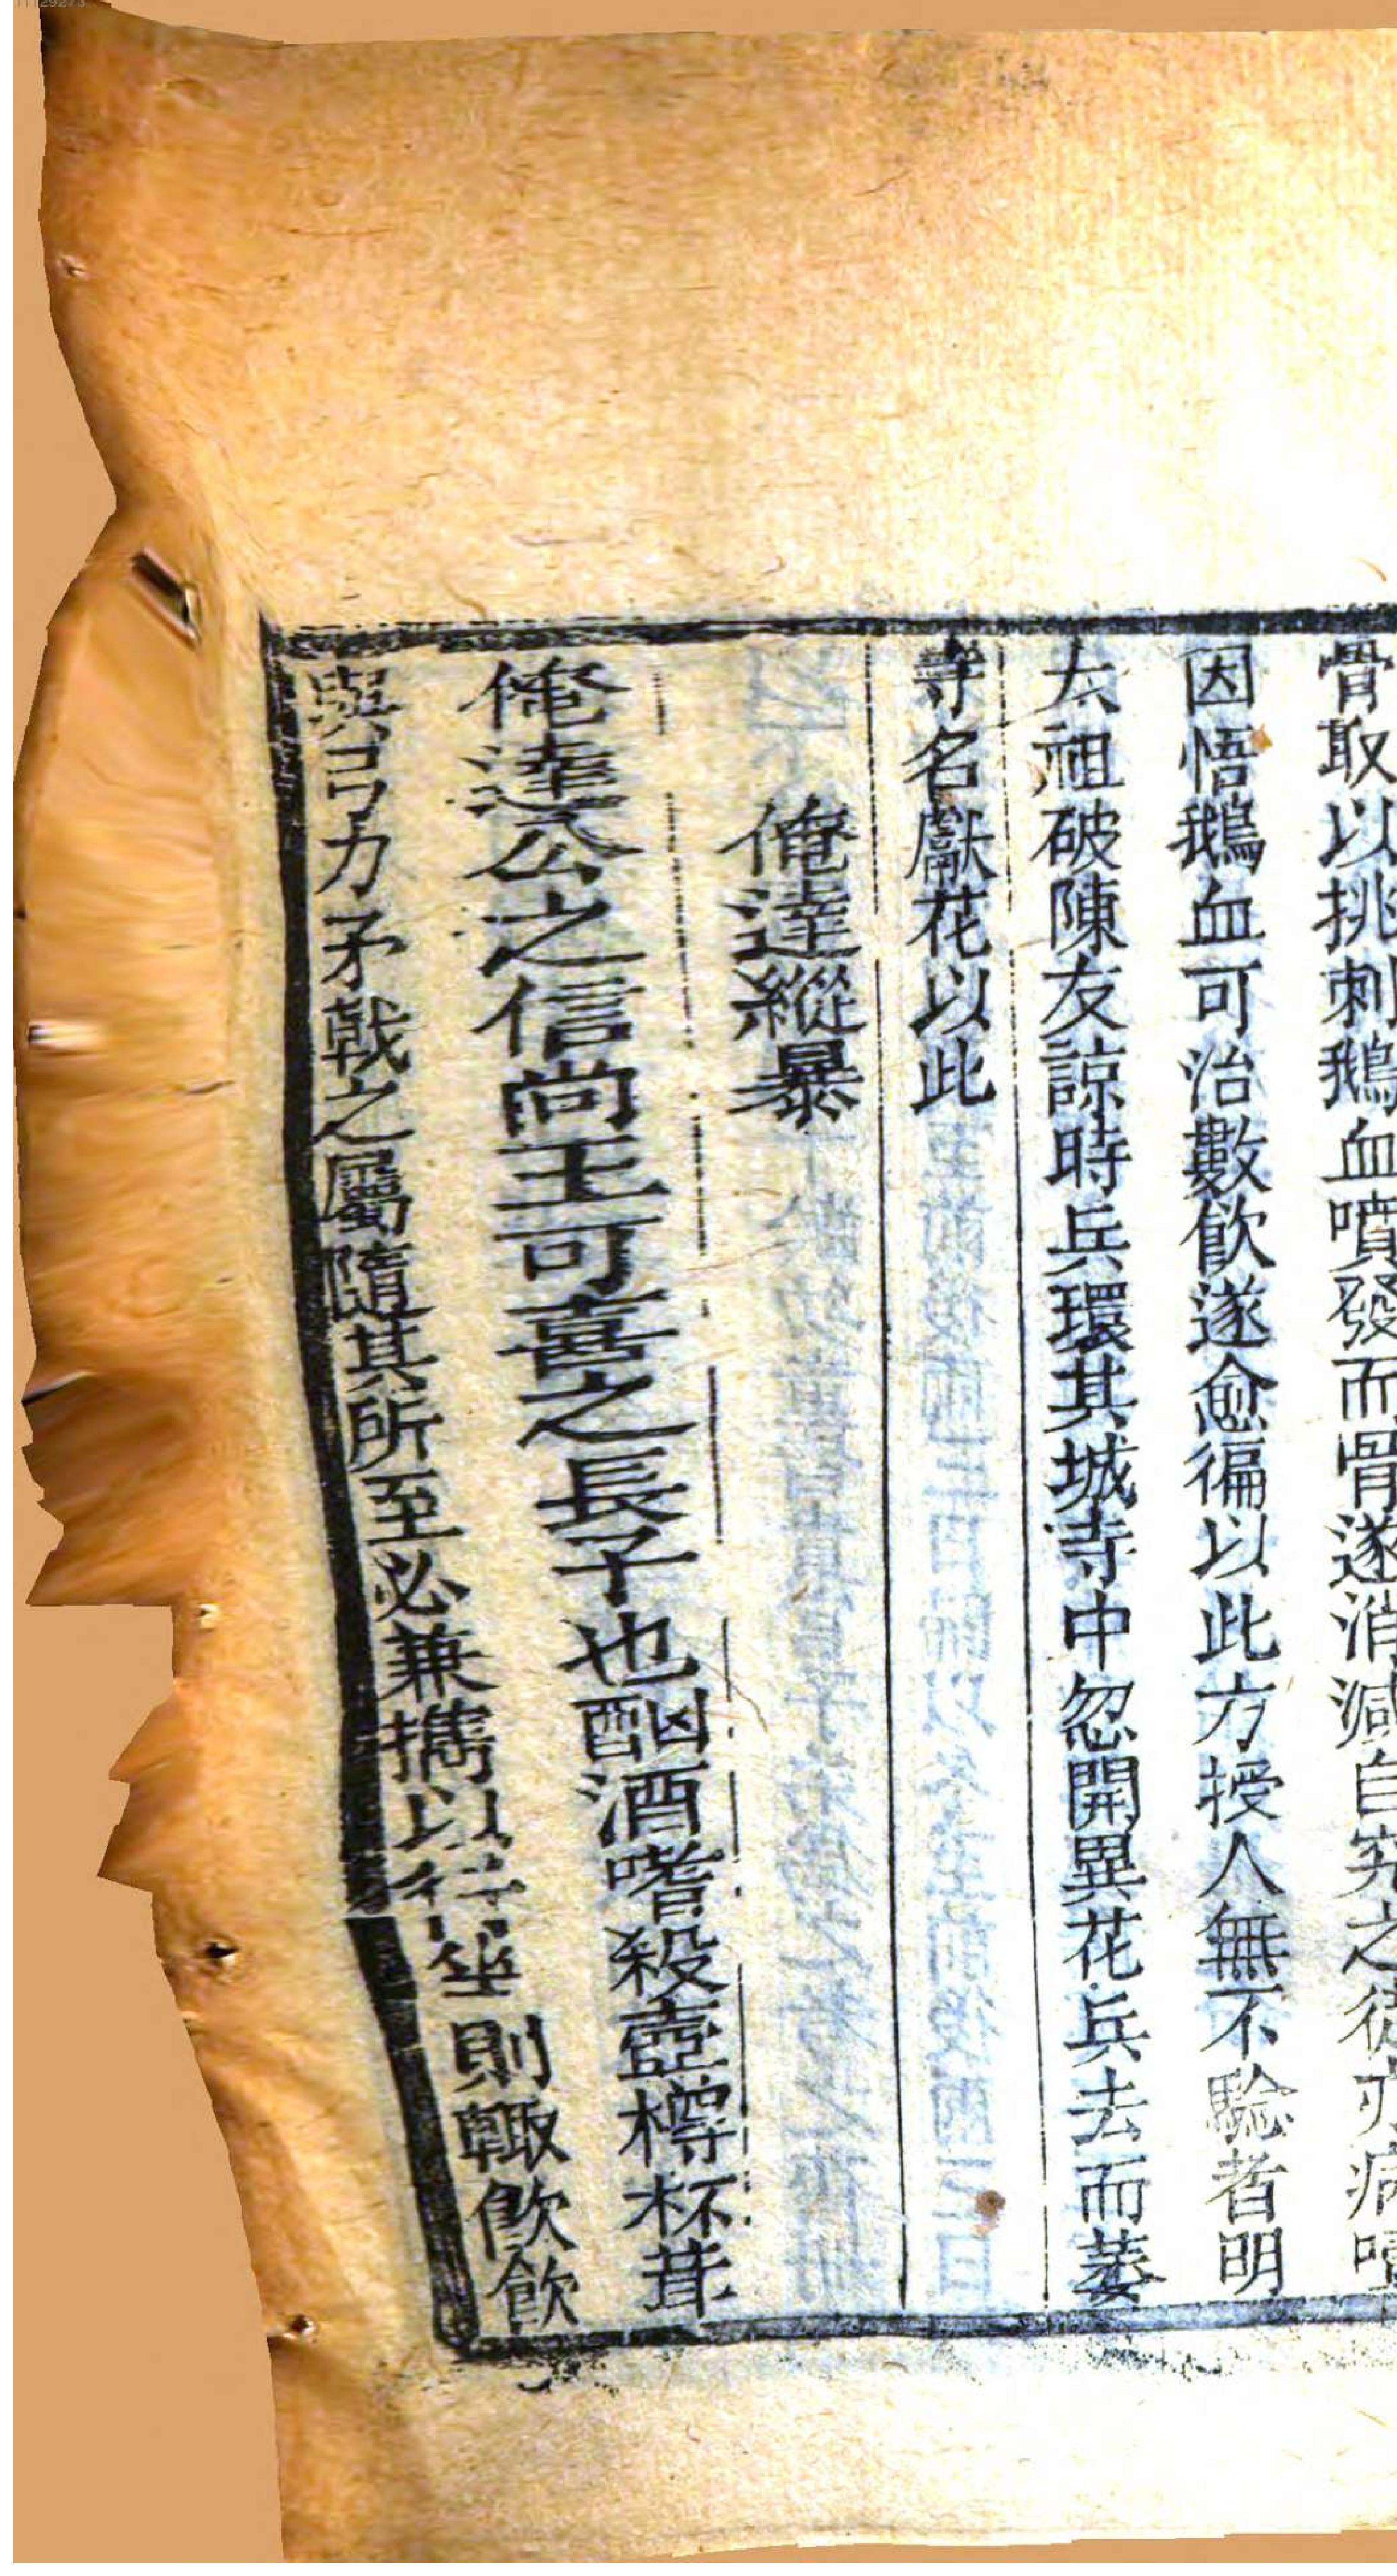 骨取以挑刺鵝血噴發而骨遂消滅自究之後亦病噎
因悟鵝血可治數飲遂愈徧以此方授人無不驗者明
太祖破陳友諒時兵環其城寺中忽開異花兵去而萎
寺名獻花以此
俺達縱暴
俺達公之信尚王可喜之長子也酗酒嗜殺壺樽杯茸
與弓刀矛戟之屬隨其所至必兼攜以行坐則輙飲飲